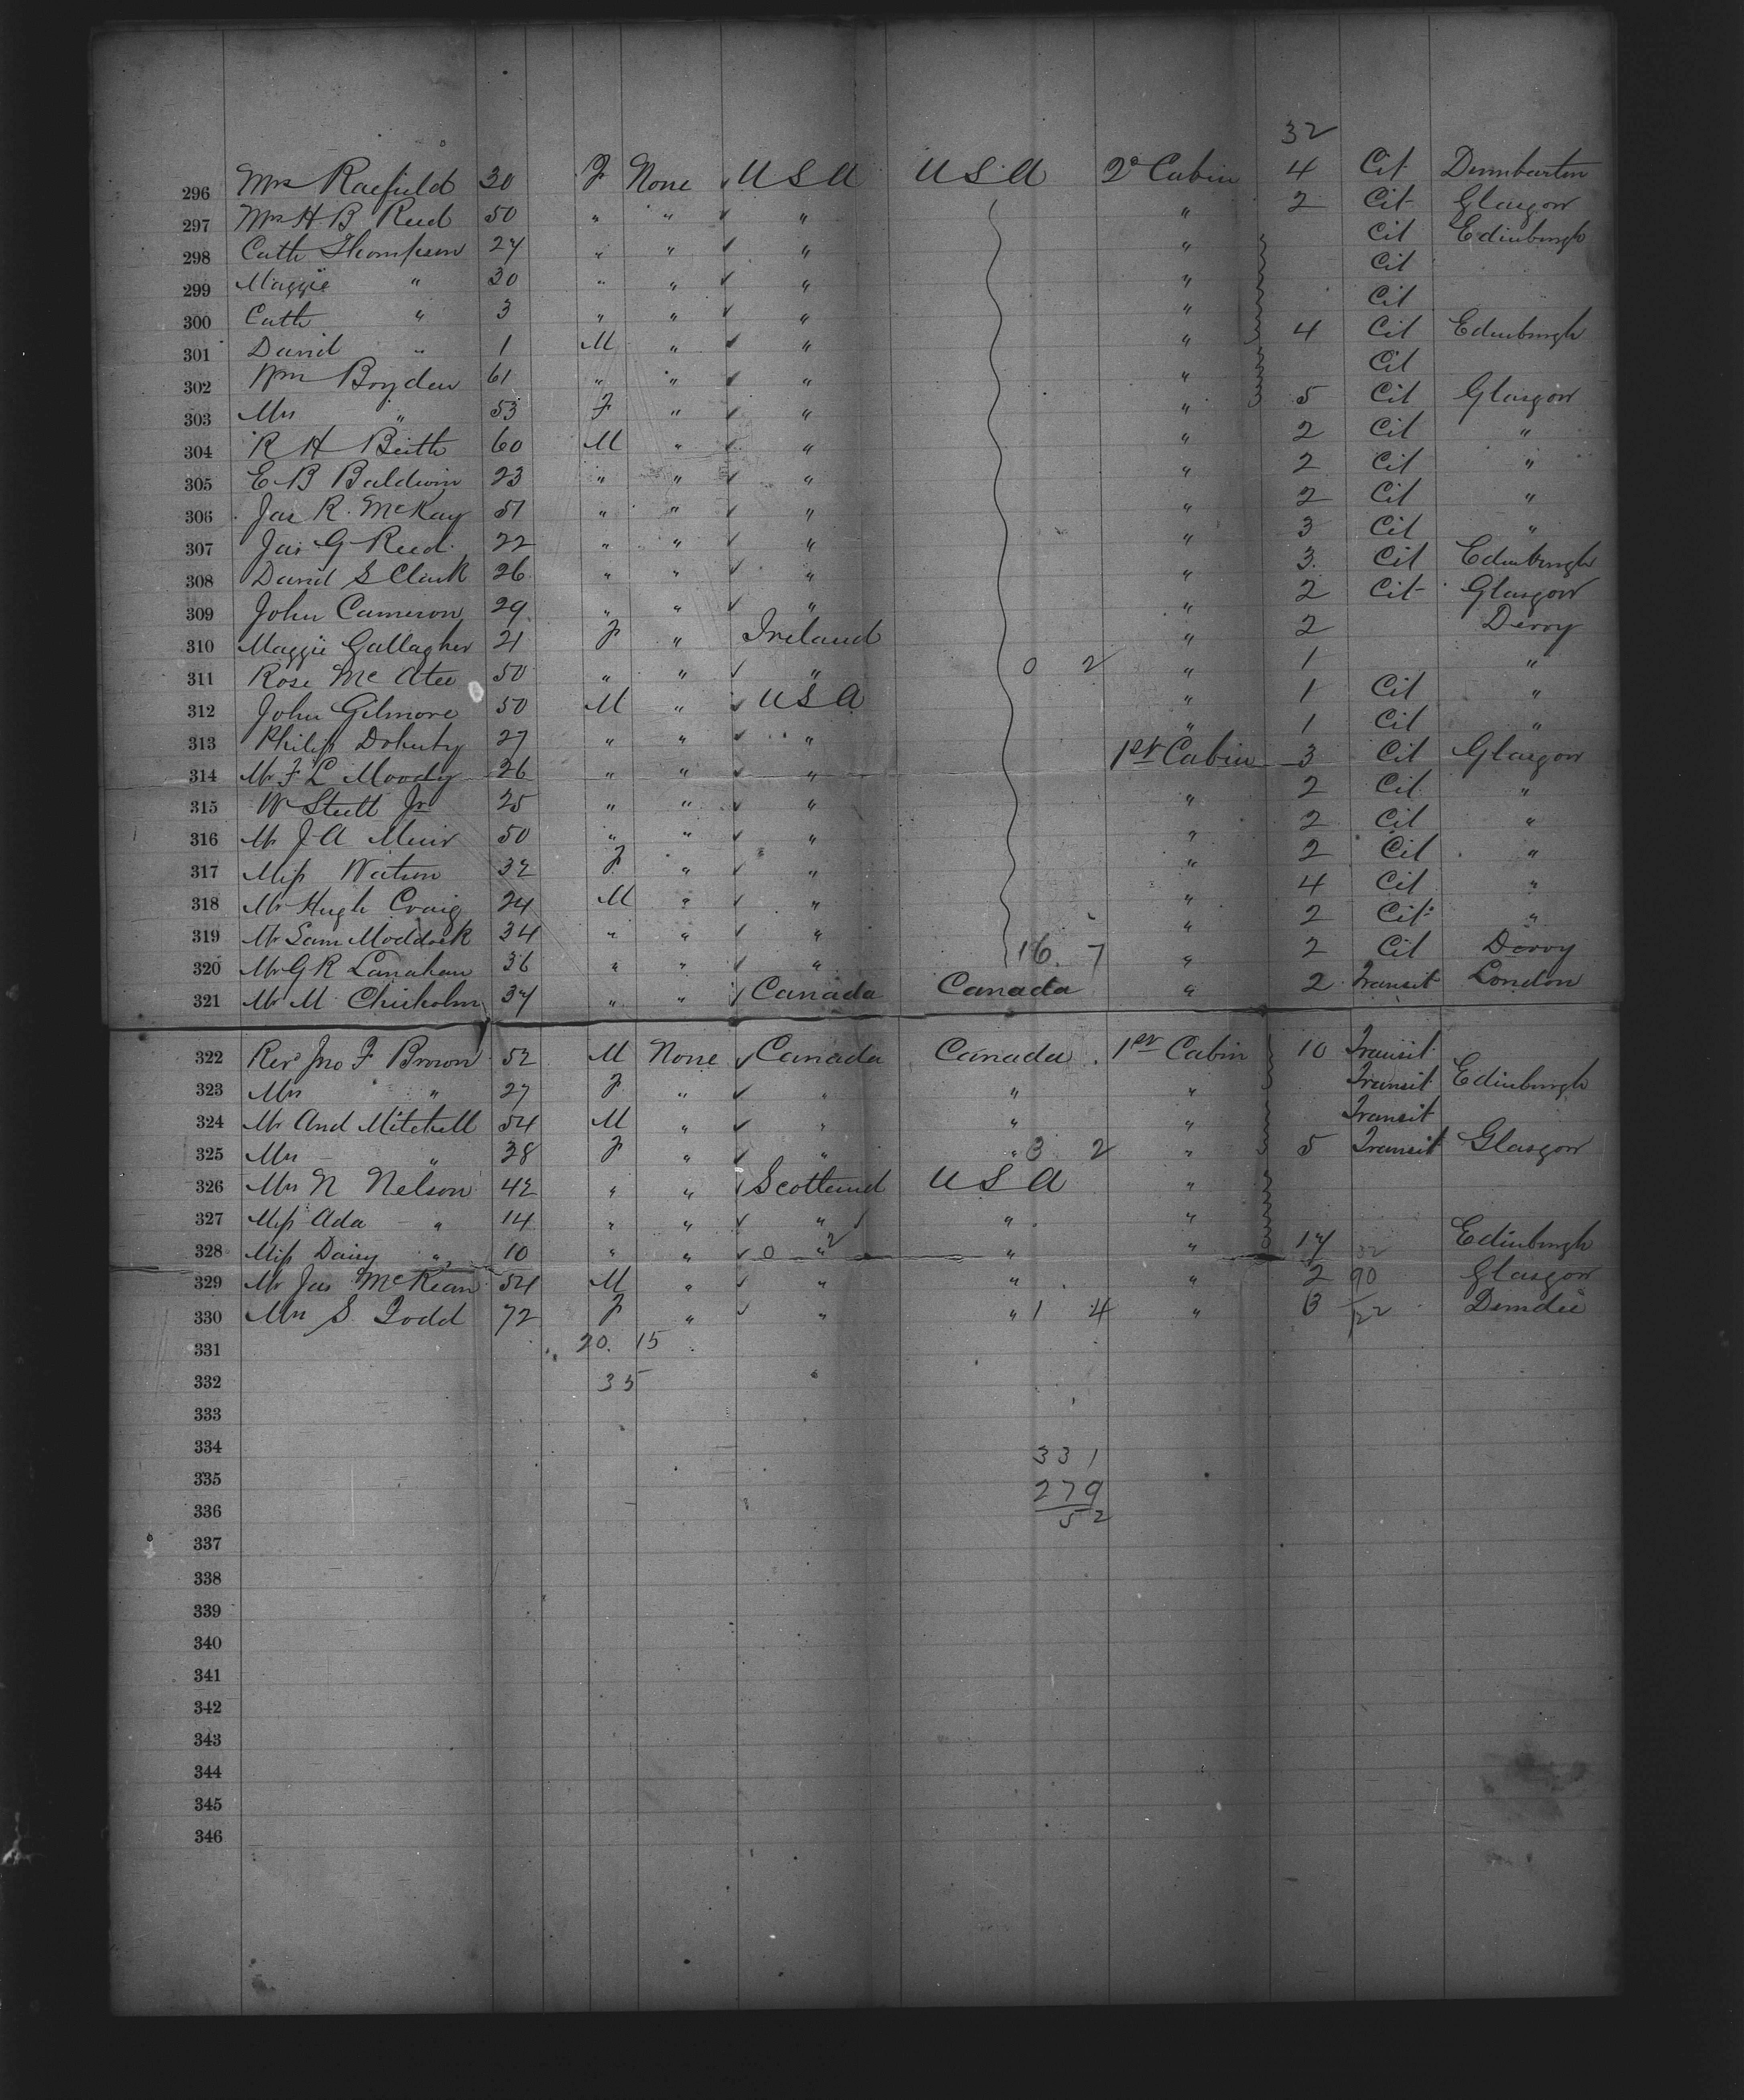 32
296 Mrs Raefield 30 F None ✓ U S A U S A 2º Cabin 4 Cit Dumbarton
297 Mrs H. B Reed 50 " " ✓ " " 2 Cit Glasgow
298 Cath Thompson 24 " " ✓ " " Cit Edinburgh
299 Maggie " 30 " " ✓ " " Cit
300 Cath " 3 " " ✓ " " Cit
301 David " 1 M " ✓ " " 4 Cit Edinburgh
302 Wm Boyden 61 " " ✓ " " Cit
303 Mrs " 53 F " ✓ " " 5 Cit Glasgow
304 R H Beith 60 M " ✓ " " 2 Cit "
305 E B Baldwin 23 " " ✓ " " 2 Cit "
306 Jas R. McKay 51 " " ✓ " " 2 Cit "
307 Jas G Reed 22 " " ✓ " " 3 Cit "
308 David S Clark 26 " " ✓ " " 3. Cit Edinburgh
309 John Cameron 29 " " ✓ " " 2 Cit Glasgow
310 Maggie Gallagher 21 F " Ireland " 2 Derry
311 Rose McAtee 50 " " ✓ " 0 2 " 1 "
312 John Gilmore 50 M " ✓ U S A " 1 Cit "
313 Philip Doherty 27 " " ✓ " " 1 Cit "
314 Mr F L Moody 26 " " ✓ " 1st Cabin 3 Cit Glasgow
315 W Steett Jr 25 " " ✓ " " 2 Cit "
316 Mr J A Muir 50 " " ✓ " " 2 Cit "
317 Miss Watson 32 F " ✓ " " 2 Cit "
318 Mr Hugh Craig 24 M " ✓ " " 4 Cit "
319 Mr Sam Moddock 34 " " ✓ " " 2 Cit "
320 Mr G R Lanahan 36 " " ✓ " 16. 7 " 2 Cit Derry
321 Mr M Chisholm 34 " " ✓ Canada Canada " 2 Transit London
322 Revd Jno F Brown 52 M None ✓ Canada Canada 1st Cabin 10 Transit
323 Mrs " 27 F " ✓ " " " Transit Edinburgh
324 Mr And Mitchell 54 M " ✓ " " " Transit
325 Mrs " 38 F " ✓ " " 3 2 " 5 Transit Glasgow
326 Mrs N Nelson 42 " " ✓ Scotland U S A "
327 Miss Ada " 14 " " ✓ " " "
328 Miss Daisy " 10 " " ✓ 0 " 2 " " 14 32 Edinburgh
329 Mr Jas McKean 54 M " ✓ " " " 2 90 Glasgow
330 Mrs S. Todd 72 F " ✓ " " 1 4 " 3 122 Dundee
331 20. 15
332 35
333
334 331
335 279
336 52
337
338
339
340
341
342
343
344
345
346